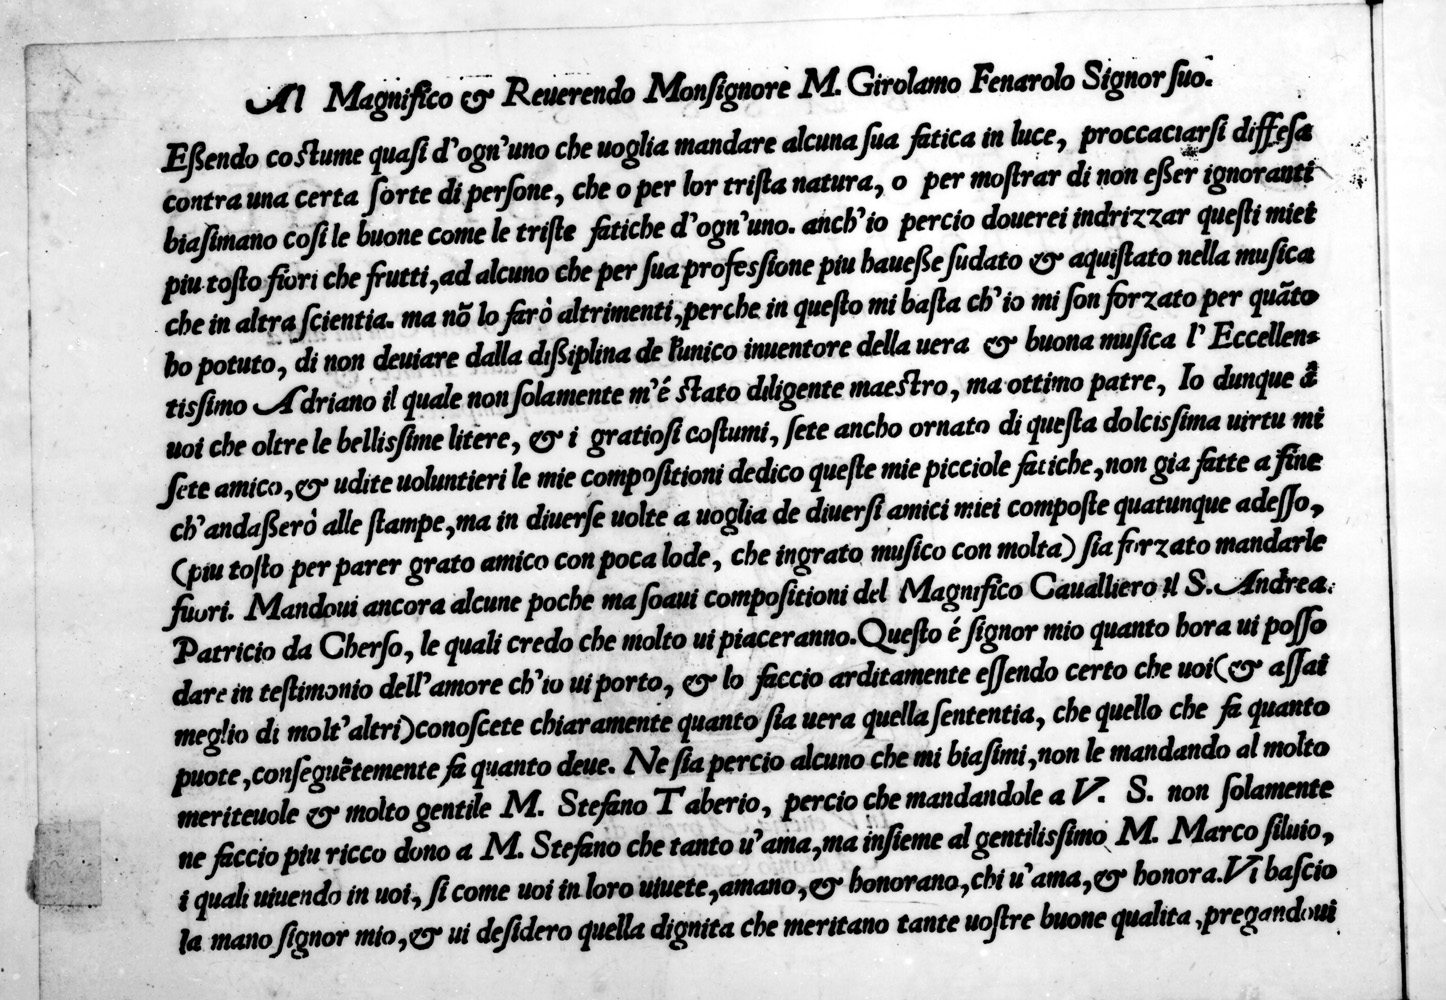 Al Magnifico & Reuerendo Monsignore M. Girolamo Fenarolo Signor suo.
Eßendo costume quasi d'ogn'uno che uoglia mandare alcuna sua fatica in luce, proccaciarsi diffesa
contra una certa sorte di persone, che o per lor trista natura, o per mostrar di non eßer ignoranti
biasimano cosi le buone come le triste fatiche d'ogn'uno. anch'io percio douerei indrizzar questi miei
piu tosto fiori che frutti, ad alcuno che per sua professione piu haueße sudato & aquistato nella musica
che in altra scientia. ma nõ lo farò altrimenti, perche in questo mi basta ch'io mi son forzato per quãto
ho potuto, di non deuiare dalla dißiplina de l'unico inuentore della uera & buona musica l' Eccellen-
tissimo Adriano il quale non solamente m'é stato diligente maestro, ma ottimo patre, Io dunque à
uoi che oltre le bellissime litere, & i gratiosi costumi, sete ancho ornato di questa dolcissima uirtu mi
sete amico, & udite uoluntieri le mie compositioni dedico queste mie picciole fatiche, non gia fatte a fine
ch'andaßerò alle stampe, ma in diuerse uolte a uoglia de diuersi amici miei composte quatunque adesso,
(piu tosto per parer grato amico con poca lode, che ingrato musico con molta) sia forzato mandarle
fuori. Mandoui ancora alcune poche ma soaui compositioni del Magnifico Caualliero il S. Andrea
Patricio da Cherso, le quali credo che molto ui piaceranno. Questo é signor mio quanto hora ui posso
dare in testimonio dell'amore ch'io ui porto, & lo faccio arditamente essendo certo che uoi (& assai
meglio di molt'altri) conoscete chiaramente quanto sia uera quella sententia, che quello che fa quanto
puote, conseguẽtemente fa quanto deue. Ne sia percio alcuno che mi biasimi, non le mandando al molto
meriteuole & molto gentile M. Stefano Taberio, percio che mandandole a V. S. non solamente
ne faccio piu ricco dono a M. Stefano che tanto u'ama, ma insieme al gentilissimo M. Marco siluio,
i quali uiuendo in uoi, si come uoi in loro uiuete, amano, & honorano, chi u'ama, & honora. Vi bascio
la mano signor mio, & ui desidero quella dignita che meritano tante uostre buone qualita, pregandoui